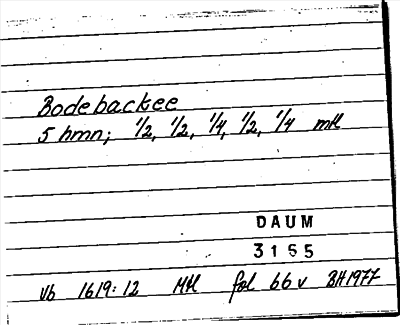 Bodebackee
5 hmn; 1/2, 1/2, 1/4, 1/2, 1/4 mtl
DAUM
3155
Vb 1619:12 Mtl fol 66v BH1977